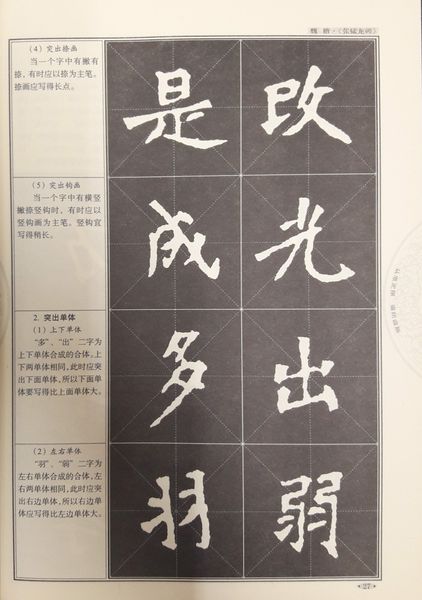 魏 楷·《张猛龙碑》
(4) 突出捺画
当一个字中有撇有
捺，有时应以捺为主笔。
捺画应写得长点。
是 改
(5) 突出钩画
当一个字中有横竖
撇捺竖钩时，有时应以
竖钩画为主笔。竖钩宜
写得稍长。
成 光
2. 突出单体
(1) 上下单体
“多”、“出”二字为
上下单体合成的合体。上
下两单体相同，此时应突
出下面单体，所以下面单
体要写得比上面单体大。
多 出
(2) 左右单体
“羽”、“弱”二字为
左右单体合成的合体，左
右两单体相同，此时应突
出右边单体，所以右边单
体应写得比左边单体大。
羽 弱
27